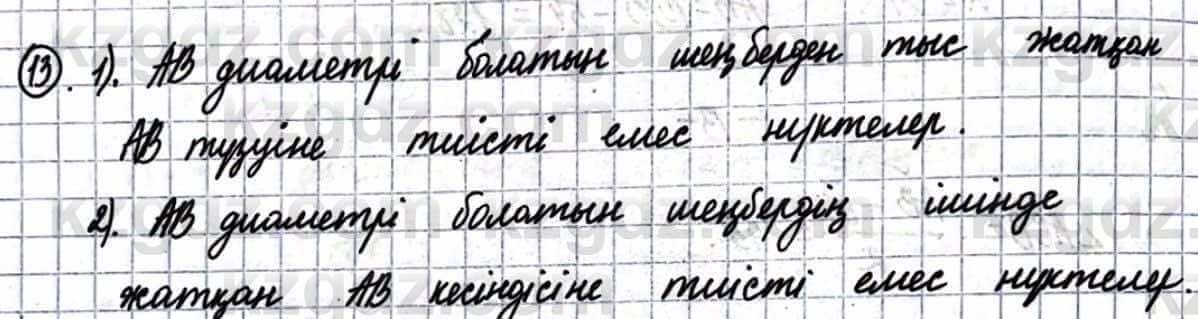 13. 1). АВ диаметрі болатын шеңберден тыс жатқан
АВ түзуіне тиісті емес нүктелер.
2). АВ диаметрі болатын шеңбердің ішінде
жатқан АВ кесіндісіне тиісті емес нүктелер.